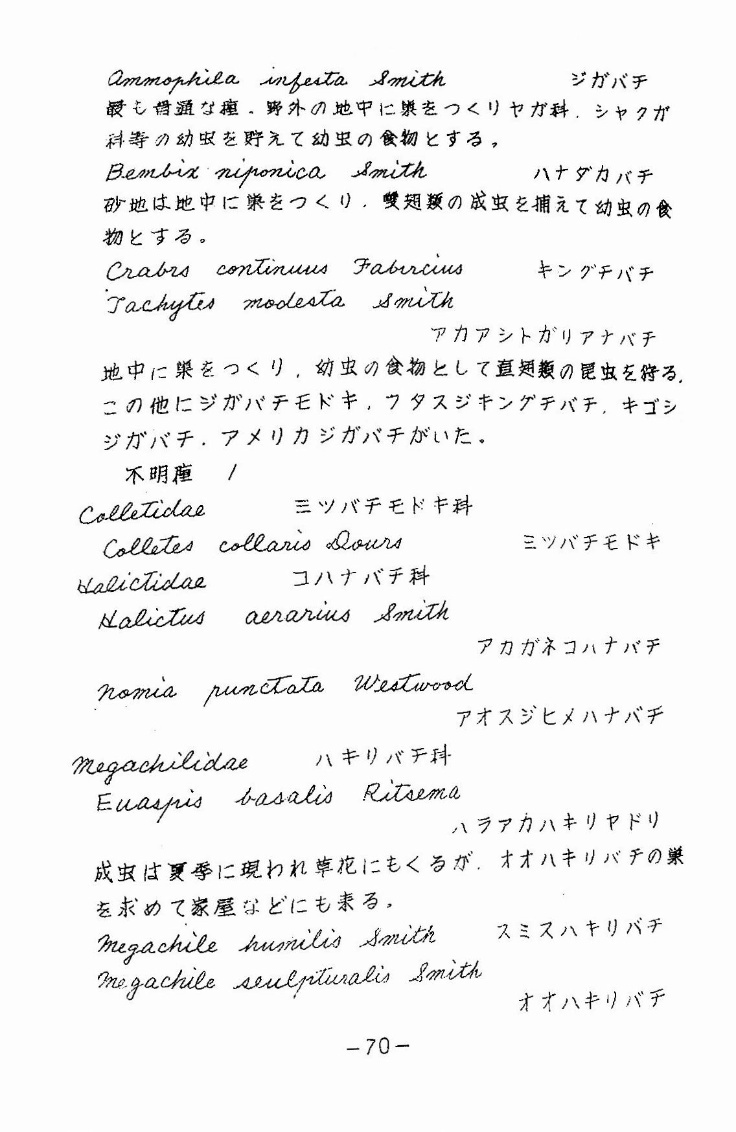 Ammophila infesta Smith ジガバチ
最も普通な種。野外の地中に巣をつくりヤガ科、シャクガ
科等の幼虫を貯えて幼虫の食物とする。
Bembix niponica Smith ハナダカバチ
砂地は地中に巣をつくり、双翅類の成虫を捕えて幼虫の食
物とする。
Crabrs continuus Fabircius キングチバチ
Tachytes modesta Smith
アカアシトガリアナバチ
地中に巣をつくり、幼虫の食物として直翅類の昆虫を狩る。
この他にジガバチモドキ、フタスジキングチバチ、キゴシ
ジガバチ、アメリカジガバチがいた。
不明種 1
Colletidae ミツバチモドキ科
Colletes collaris Dours ミツバチモドキ
Halictidae コハナバチ科
Halictus aerarius Smith
アカガネコハナバチ
Nomia punctata Westwood
アオスジヒメハナバチ
Megachilidae ハキリバチ科
Euaspis basalis Ritsema
ハラアカハキリヤドリ
成虫は夏季に現われ草花にもくるが、オオハキリバチの巣
を求めて家屋などにも来る。
Megachile humilis Smith スミスハキリバチ
Megachile seulpturalis Smith
オオハキリバチ
－70－